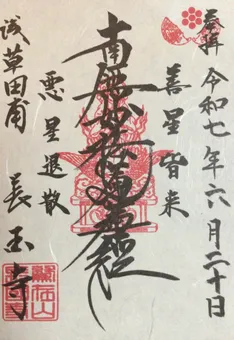 奉拝
令和七年六月二十日
善星皆来
南無妙法蓮華経
悪星退散
浅草田甫
長国寺